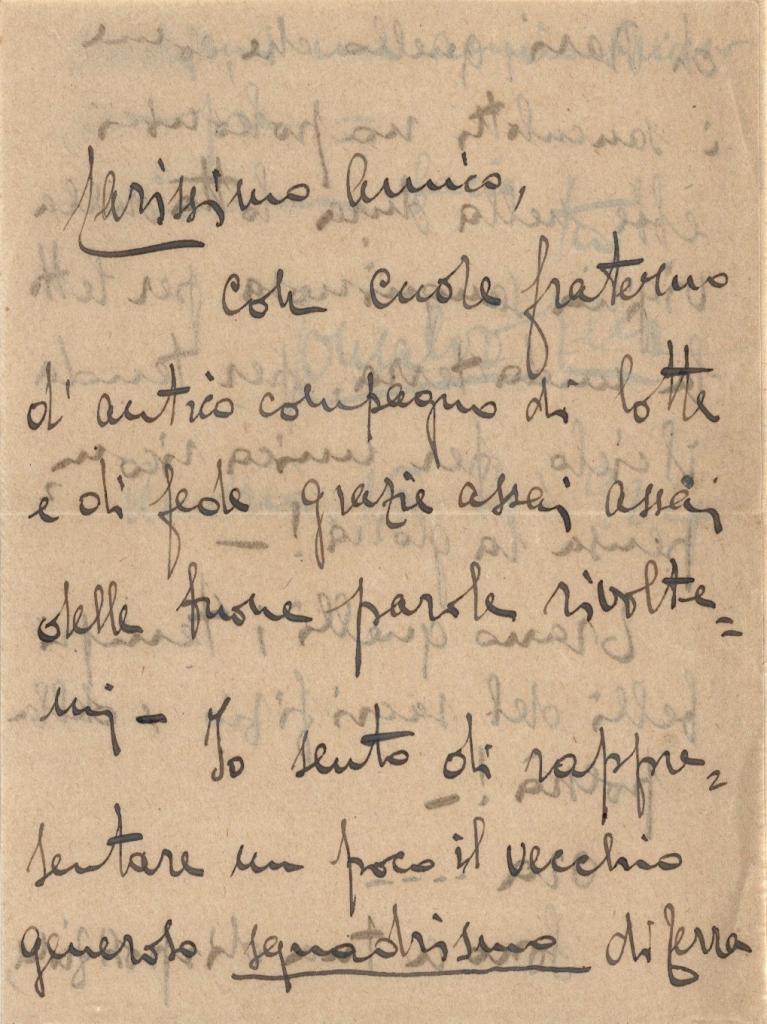 Carissimo Amico,
con cuore fraterno
d'antico compagno di lotte
e di fede grazie assai assai
delle buone parole rivolte=
mi - Io sento di rappre=
sentare un poco il vecchio
generoso squadrismo di Ferra